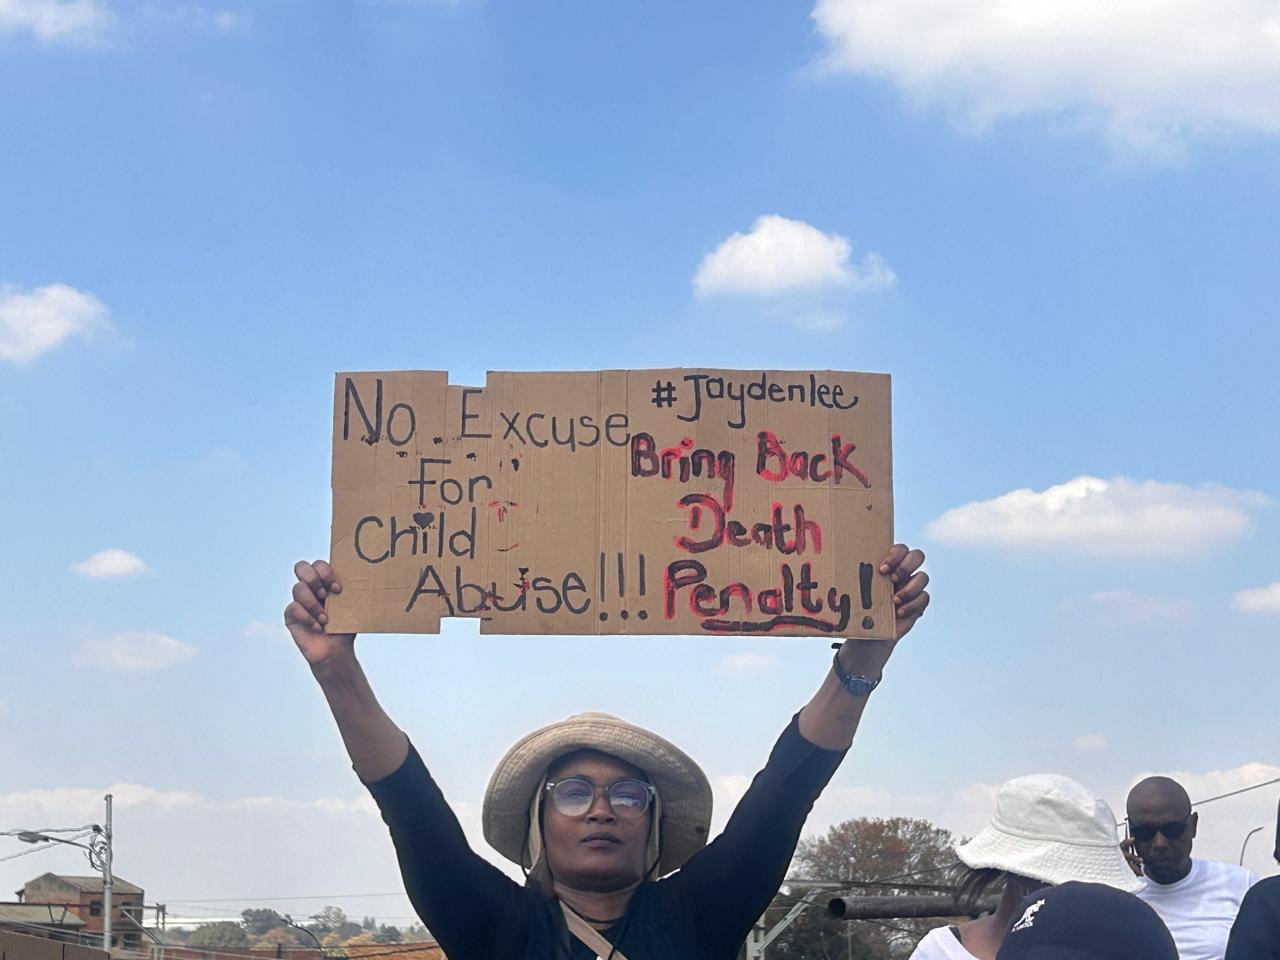 No Excuse
For
Child
Abuse!!!
#Jaydenlee
Bring Back
Death
Penalty!